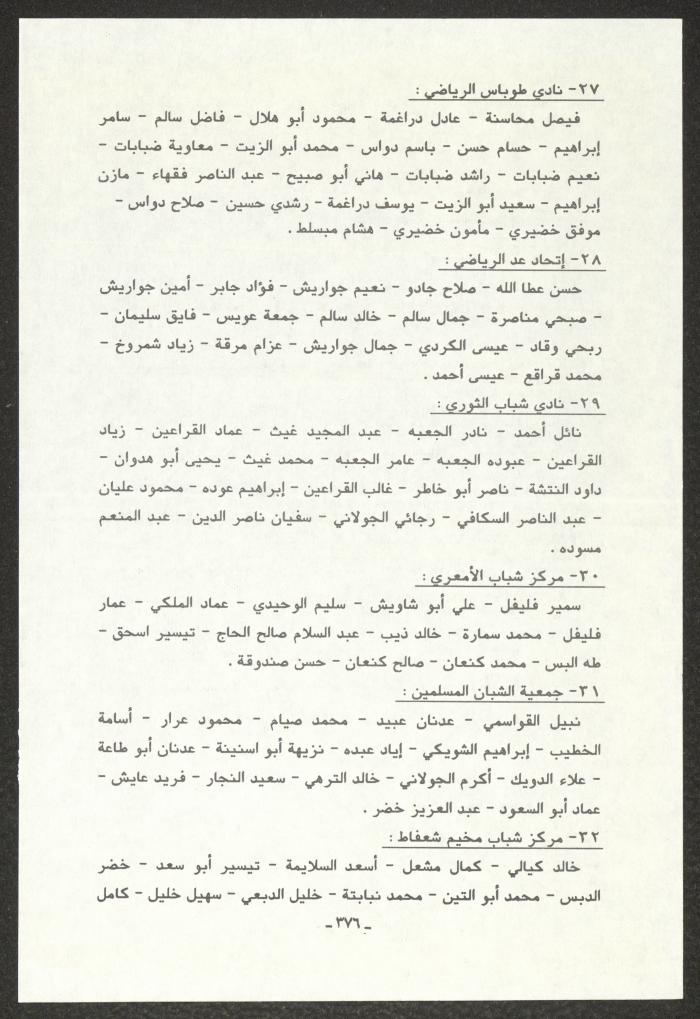 ٢٧- نادي طوباس الرياضي :
فيصل محاسنة - عادل دراغمة - محمود أبو هلال - فاضل سالم - سامر
إبراهيم - حسام حسن - باسم دواس - محمد أبو الزيت - معاوية ضبابات -
نعيم ضبابات - راشد ضبابات - هاني أبو صبيح - عبد الناصر فقهاء - مازن
إبراهيم - سعيد أبو الزيت - يوسف دراغمة - رشدي حسين - صلاح دواس -
موفق خضيري - مأمون خضيري - هشام مبسلط .
٢٨- إتحاد عد الرياضي :
حسن عطا الله - صلاح جادو - نعيم جواريش - فؤاد جابر - أمين جواريش
- صبحي مناصرة - جمال سالم - خالد سالم - جمعة عويس - فايق سليمان -
ربحي وقاد - عيسى الكردي - جمال جواريش - عزام مرقة - زياد شمروخ -
محمد قراقع - عيسى أحمد .
٢٩- نادي شباب الثوري :
نائل أحمد - نادر الجعبه - عبد المجيد غيث - عماد القراعين - زياد
القراعين - عبوده الجعبه - عامر الجعبه - محمد غيث - يحيى أبو هدوان -
داود النتشة - ناصر أبو خاطر - غالب القراعين - إبراهيم عوده - محمود عليان
- عبد الناصر السكافي - رجائي الجولاني - سفيان ناصر الدين - عبد المنعم
مسوده .
٣٠- مركز شباب الأمعري :
سمير فليفل - علي أبو شاويش - سليم الوحيدي - عماد الملكي - عمار
فليفل - محمد سمارة - خالد ذيب - عبد السلام صالح الحاج - تيسير اسحق -
طه البس - محمد كنعان - صالح كنعان - حسن صندوقة .
٣١- جمعية الشبان المسلمين :
نبيل القواسمي - عدنان عبيد - محمد صيام - محمود عرار - أسامة
الخطيب - إبراهيم الشويكي - إياد عبده - نزيهة أبو اسنينة - عدنان أبو طاعة
- علاء الدويك - أكرم الجولاني - خالد الترهي - سعيد النجار - فريد عايش -
عماد أبو السعود - عبد العزيز خضر .
٣٢- مركز شباب مخيم شعفاط :
خالد كيالي - كمال مشعل - أسعد السلايمة - تيسير أبو سعد - خضر
الدبس - محمد أبو التين - محمد نبابتة - خليل الدبعي - سهيل خليل - كامل
- ٣٧٦ -